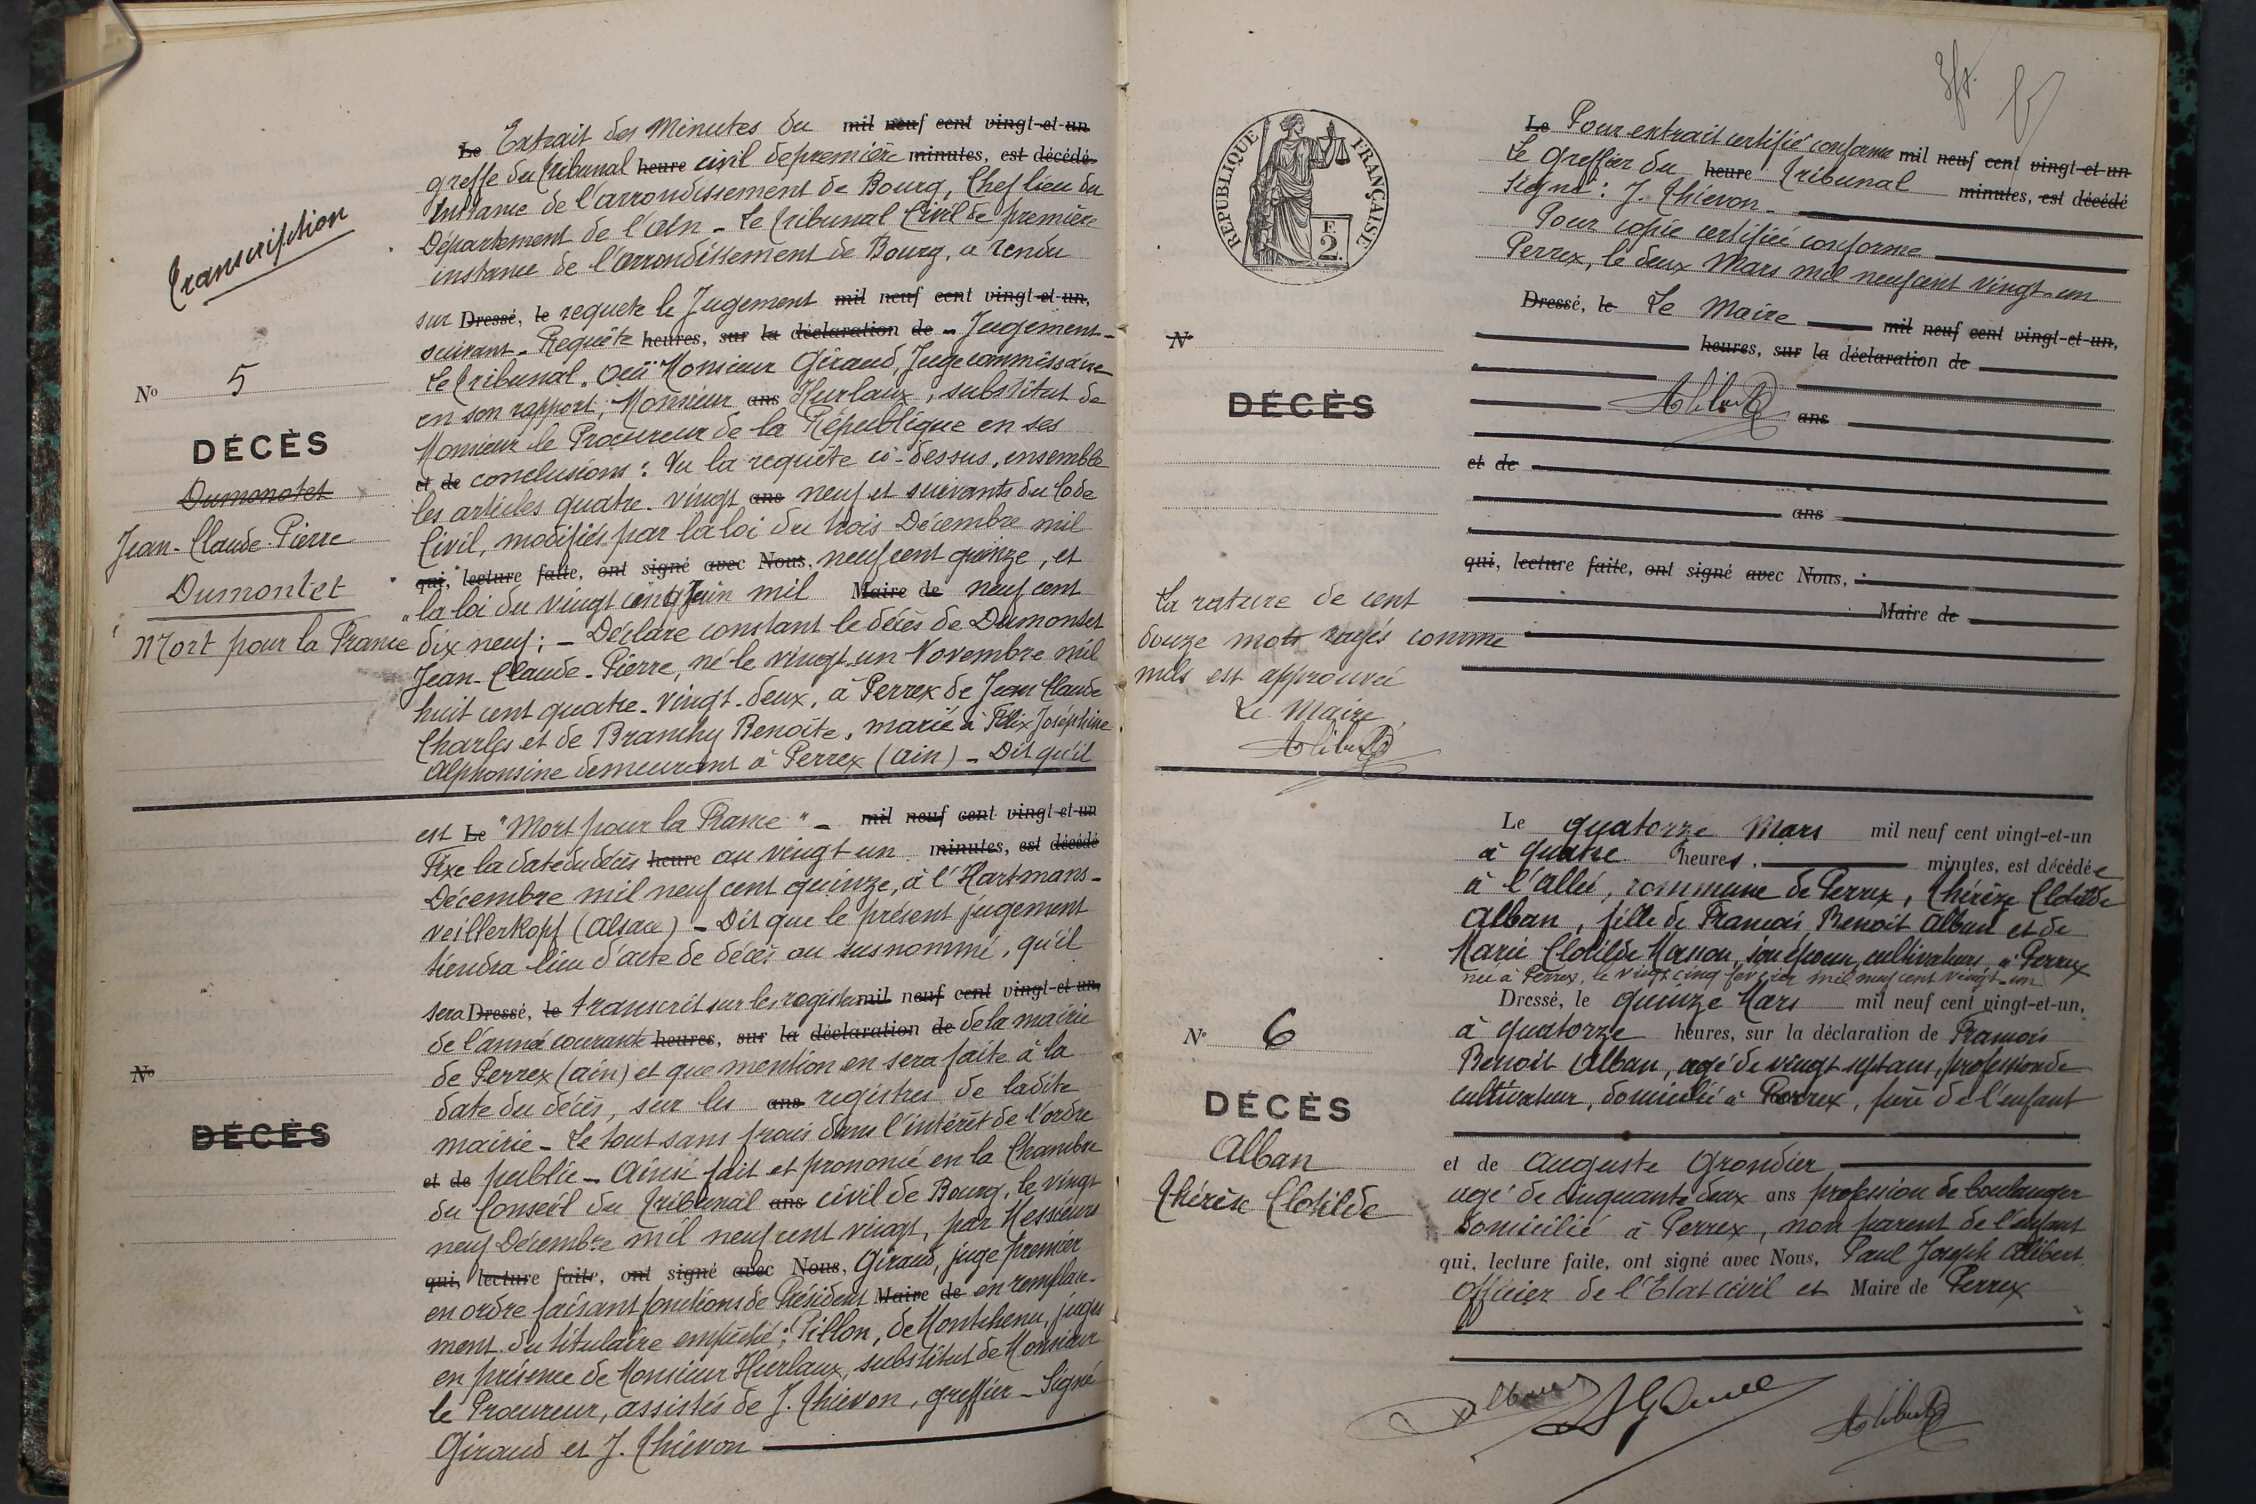 Transcription
Nº 5
DÉCÈS
Dumonotet
Jean-Claude-Pierre
Dumontet
Mort pour la France
Le Extrait des Minutes du mil neuf cent vingt-et-un
greffe du Tribunal heure civil de première minutes, est décédé
Instance de l'arrondissement de Bourg, Chef lieu du
Département de l'Ain - Le Tribunal Civil de première
instance de l'arrondissement de Bourg, a rendu
sur Dressé, le requete le Jugement mil neuf cent vingt-et-un,
suivant - Requête heures, sur la déclaration de - Jugement -
Le Tribunal. Ouï Monsieur Giraud, Juge commissaire
en son rapport, Monsieur ans Hurlaux, substitut de
Monsieur le Procureur de la République en ses
et de conclusions : Vu la requête ci-dessus, ensemble
les articles quatre-vingt ans neuf et suivants du Code
Civil, modifiés par la loi du trois Décembre mil
qui, lecture faite, ont signé avec Nous, neuf cent quinze, et
la loi du vingt cinq Juin mil Maire de neuf cent
dix neuf ; - Déclare constant le décès de Dumontet
Jean-Claude-Pierre, né le vingt-un Novembre mil
huit cent quatre-vingt-deux, à Perrex de Jean Claude
Charles et de Branchy Benoîte, marié à Félix Joséphine
Alphonsine demeurant à Perrex (Ain) - Dit qu'il
Nº
DÉCÈS
est Le "Mort pour la France" - mil neuf cent vingt-et-un
Fixe la date du décès heure au vingt un minutes, est décédé
Décembre mil neuf cent quinze, à l'Hartmans-
veillerkopf (Alsace) - Dit que le présent jugement
tiendra lieu d'acte de décès au susnommé, qu'il
sera Dressé, le transcrit sur les registres mil neuf cent vingt-et-un,
de l'année courante heures, sur la déclaration de de la mairie
de Perrex (Ain) et que mention en sera faite à la
date du décès, sur les ans registres de ladite
mairie - Le tout sans frais dans l'intérêt de l'ordre
et de public - Ainsi fait et prononcé en la Chambre
du Conseil du Tribunal ans civil de Bourg, le vingt
neuf Décembre mil neuf cent vingt, par Messieurs
qui, lecture faite, ont signé avec Nous, Giraud, juge premier
en ordre faisant fonctions de Président Maire de en remplace-
ment du titulaire empêché ; Pillon, de Montchenu, juges
en présence de Monsieur Hurlaux, substitut de Monsieur
le Procureur, assistés de J. Thievon, greffier - Signé
Giraud et J. Thievon
RÉPUBLIQUE FRANÇAISE
F.
2.
Nº
DÉCÈS
Le Pour extrait certifié conforme mil neuf cent vingt-et-un
Le Greffier du heure Tribunal minutes, est décédé
Signé : J. Thievon
Pour copie certifiée conforme
Perrex, le deux Mars mil neuf cent vingt-un
Dressé, le Le Maire mil neuf cent vingt-et-un,
heures, sur la déclaration de
Alibert ans
et de
ans
qui, lecture faite, ont signé avec Nous,
Maire de
La rature de cent
douze mots rayés comme
nuls est approuvée
Le Maire,
Alibert
Nº 6
DÉCÈS
Alban
Thérèse Clotilde
Le quatorze Mars mil neuf cent vingt-et-un
à quatre heures. minutes, est décédée
à l'Allée, commune de Perrex, Thérèse Clotilde
Alban, fille de François Benoit Alban et de
Marie Clotilde Masson, son épouse, cultivateurs à Perrex
née à Perrex, le vingt cinq février mil neuf cent vingt-un
Dressé, le quinze Mars mil neuf cent vingt-et-un,
à quatorze heures, sur la déclaration de François
Benoit Alban, agé de vingt sept ans, profession de
cultivateur, domicilié à Perrex, père de l'enfant
et de Auguste Grondier
agé de cinquante deux ans profession de boulanger
domicilié à Perrex, non parent de l'enfant
qui, lecture faite, ont signé avec Nous, Paul Joseph Alibert
Officier de l'Etat civil et Maire de Perrex
Alibert